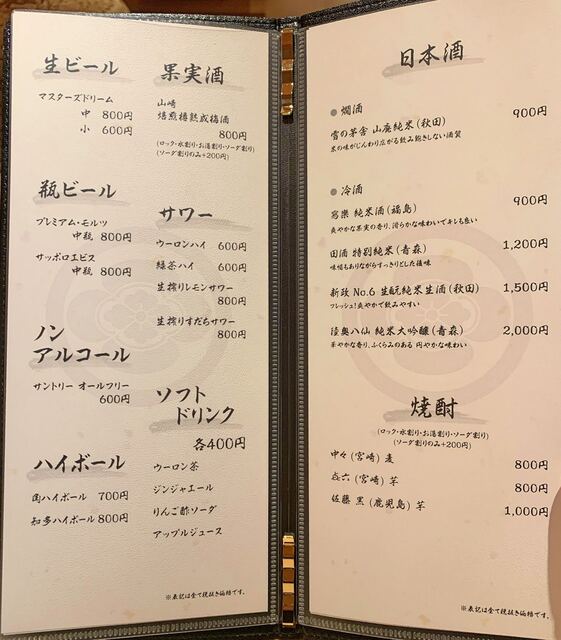 生ビール
マスターズドリーム
中 800円
小 600円
瓶ビール
プレミアム・モルツ
中瓶 800円
サッポロエビス
中瓶 800円
ノン
アルコール
サントリー オールフリー
600円
ハイボール
角ハイボール 700円
知多ハイボール 800円
果実酒
山崎
焙煎樽熟成梅酒
800円
(ロック・水割り・お湯割り・ソーダ割り)
(ソーダ割りのみ+200円)
サワー
ウーロンハイ 600円
緑茶ハイ 600円
生搾りレモンサワー
800円
生搾りすだちサワー
800円
ソフト
ドリンク
各400円
ウーロン茶
ジンジャエール
りんご酢ソーダ
アップルジュース
※表記は全て税抜き価格です。
日本酒
●燗酒
雪の茅舎 山廃純米(秋田) 900円
米の味がじんわり広がる飲み飽きしない酒質
●冷酒
寫樂 純米酒(福島) 900円
爽やかな果実の香り、滑らかな味わいでキレも良い
田酒 特別純米(青森) 1,200円
味幅もありながらすっきりとした後味
新政 No.6 生酛純米生酒(秋田) 1,500円
フレッシュ!爽やかで飲みやすい
陸奥八仙 純米大吟醸(青森) 2,000円
華やかな香り、ふくらみのある 円やかな味わい
焼酎
(ロック・水割り・お湯割り・ソーダ割り)
(ソーダ割りのみ+200円)
中々(宮崎)麦 800円
㐂六(宮崎)芋 800円
佐藤 黒(鹿児島)芋 1,000円
※表記は全て税抜き価格です。